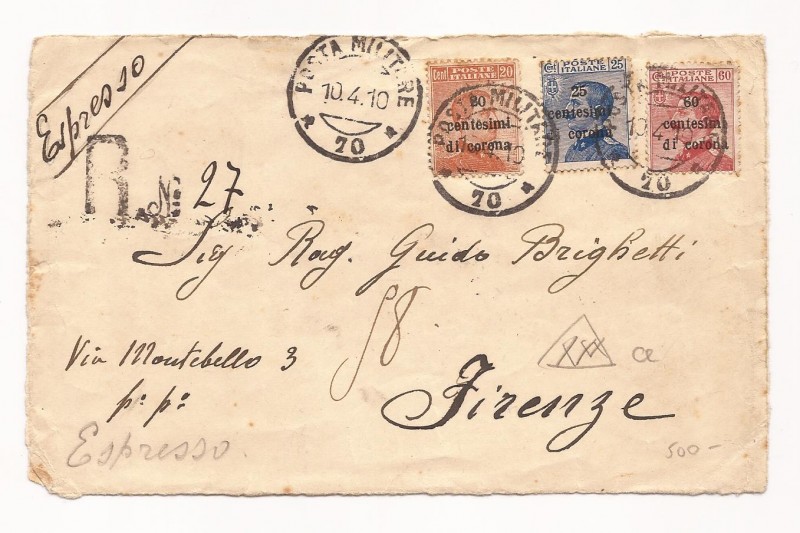 Espresso
POSTA MILITARE
10.4.10
* 70 *
Cent POSTE ITALIANE 20
20 centesimi di corona
POSTA MILITARE
10
* 70 *
POSTE ITALIANE 25
25 centesimi di corona
Ct. POSTE ITALIANE 60
60 centesimi di corona
10.4
70
R No 27
Sig Rag. Guido Brighetti
58
Via Montebello 3
p: p:
Firenze
Espresso.
500-